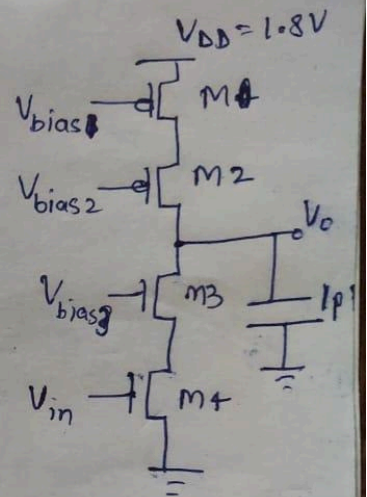 VDD = 1.8V
Vbias1
M1
Vbias2
M2
Vo
Vbias3
M3
1pf
Vin
M4